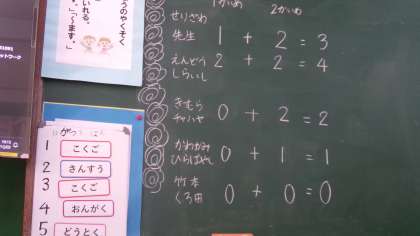 うのやくそく
いれる。
す。」「〜ます。」
1 こくご
2 さんすう
3 こくご
4 おんがく
5 どうとく
1かいめ 2かいめ
せりざわ
先生 1 + 2 = 3
えんどう
しらいし 2 + 2 = 4
きむら
チハヤ 0 + 2 = 2
かわかみ
ひらばやし 0 + 1 = 1
竹本
くろ田 0 + 0 = 0